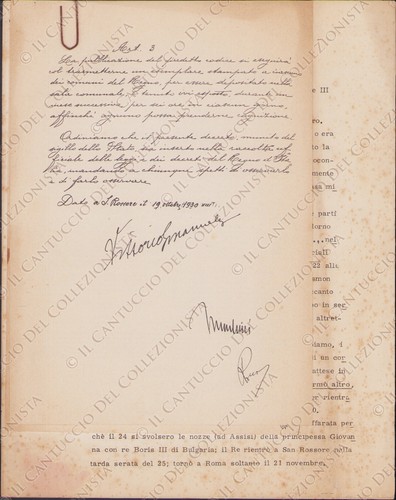 Art. 3
La pubblicazione del predetto codice si eseguirà
col trasmetterne un esemplare stampato a ciascuno
dei comuni del Regno, per essere depositato nella
sala comunale, e tenutvi esposto, durante un
mese successivo, per sei ore in ciascun giorno,
affinché ognuno possa prenderne cognizione.
Ordiniamo che il presente decreto, munito del
sigillo dello Stato, sia inserto nella raccolta uf-
ficiale delle leggi e dei decreti del Regno d'Ita-
lia, mandando a chiunque spetti di osservarlo
e di farlo osservare.
Dato a S. Rossore il 19 ottobre 1930
Vittorio Emanuele
Mussolini
Rocco
III
ro.
o era
ò la
ocon-
essa
sa mi
parti
torno
nei
ciali
22 alla
asmon
ccante
o in ser
altret-
iamo, i
di un cor
attese in
ermò altro,
er rientra
0.
affarata per
chè il 24 si svolsero le nozze (ad Assisi) della principessa Giovan
na con re Boris III di Bulgaria; il Re rientrò a San Rossore nella
tarda serata del 25; tornò a Roma soltanto il 21 novembre.
© IL CANTUCCIO DEL COLLEZIONISTA